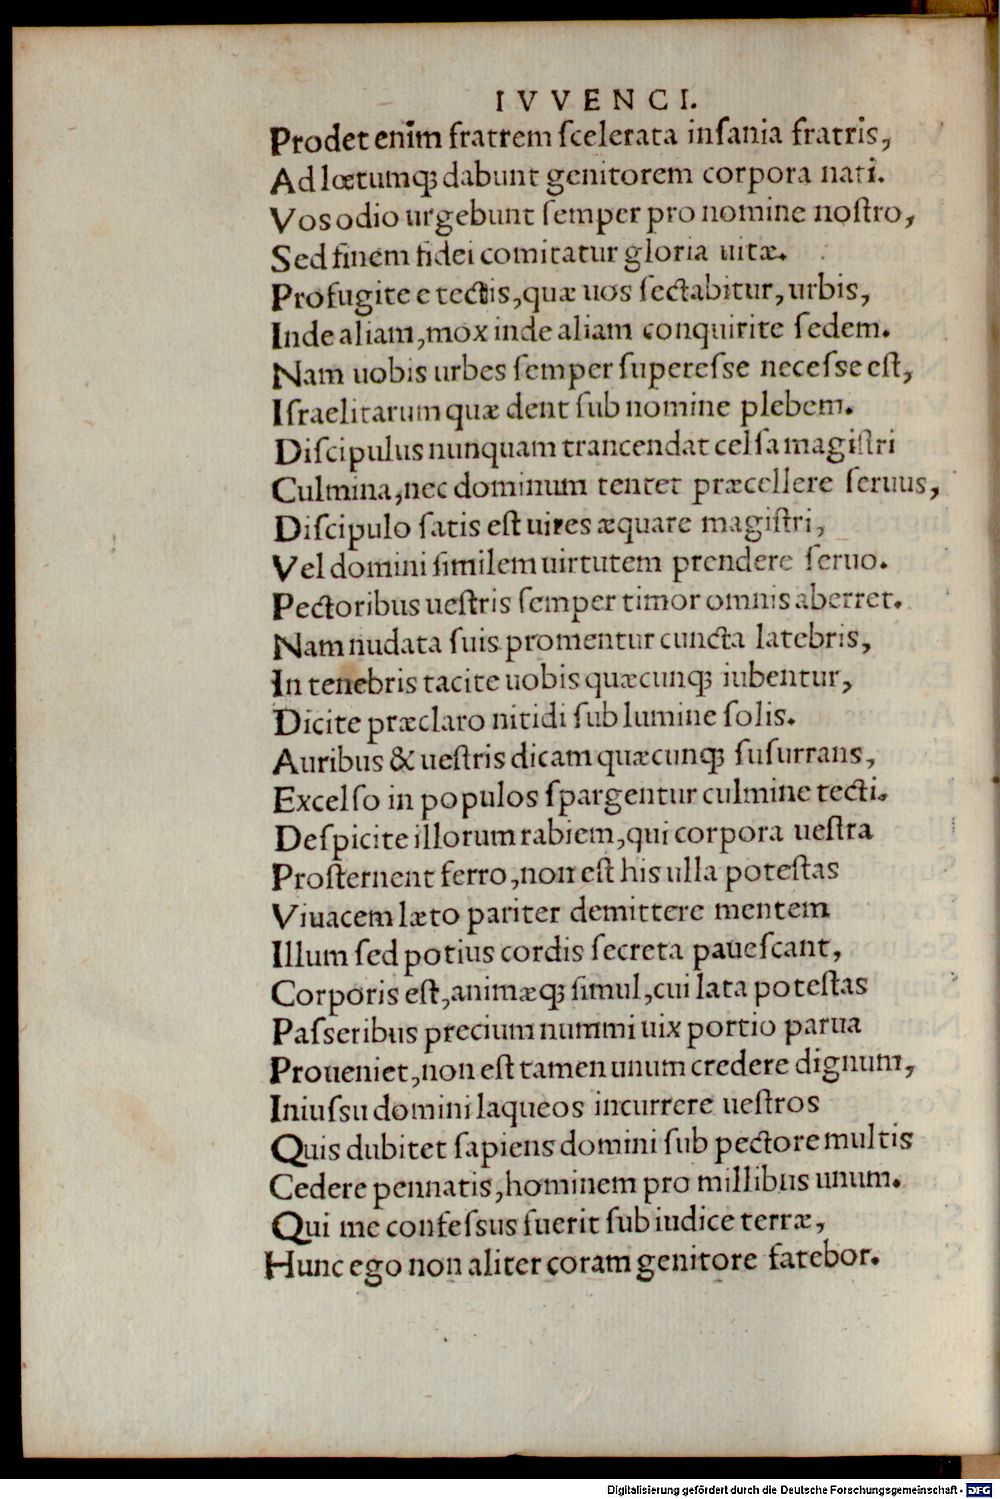 IVVENCI.
Prodet enim fratrem ſcelerata inſania fratris,
Ad lœtumq; dabunt genitorem corpora nati.
Vos odio urgebunt ſemper pro nomine noſtro,
Sed finem fidei comitatur gloria uitæ.
Profugite e tectis, quæ uos ſectabitur, urbis,
Inde aliam, mox inde aliam conquirite ſedem.
Nam uobis urbes ſemper ſupereſse neceſse eſt,
Iſraelitarum quæ dent ſub nomine plebem.
Diſcipulus nunquam trancendat celſa magiſtri
Culmina, nec dominum tentet præcellere ſeruus,
Diſcipulo ſatis eſt uires æquare magiſtri,
Vel domini ſimilem uirtutem prendere ſeruo.
Pectoribus ueſtris ſemper timor omnis aberret.
Nam nudata ſuis promentur cuncta latebris,
In tenebris tacite uobis quæcunq; iubentur,
Dicite præclaro nitidi ſub lumine ſolis.
Auribus & ueſtris dicam quæcunq; ſuſurrans,
Excelſo in populos ſpargentur culmine tecti.
Deſpicite illorum rabiem, qui corpora ueſtra
Proſternent ferro, non eſt his ulla poteſtas
Viuacem læto pariter demittere mentem
Illum ſed potius cordis ſecreta paueſcant,
Corporis eſt, animæq; ſimul, cui lata poteſtas
Paſseribus precium nummi uix portio parua
Proueniet, non eſt tamen unum credere dignum,
Iniuſsu domini laqueos incurrere ueſtros
Quis dubitet ſapiens domini ſub pectore multis
Cedere pennatis, hominem pro millibus unum.
Qui me confeſsus fuerit ſub iudice terræ,
Hunc ego non aliter coram genitore fatebor.
Digitalisierung gefördert durch die Deutsche Forschungsgemeinschaft - DFG